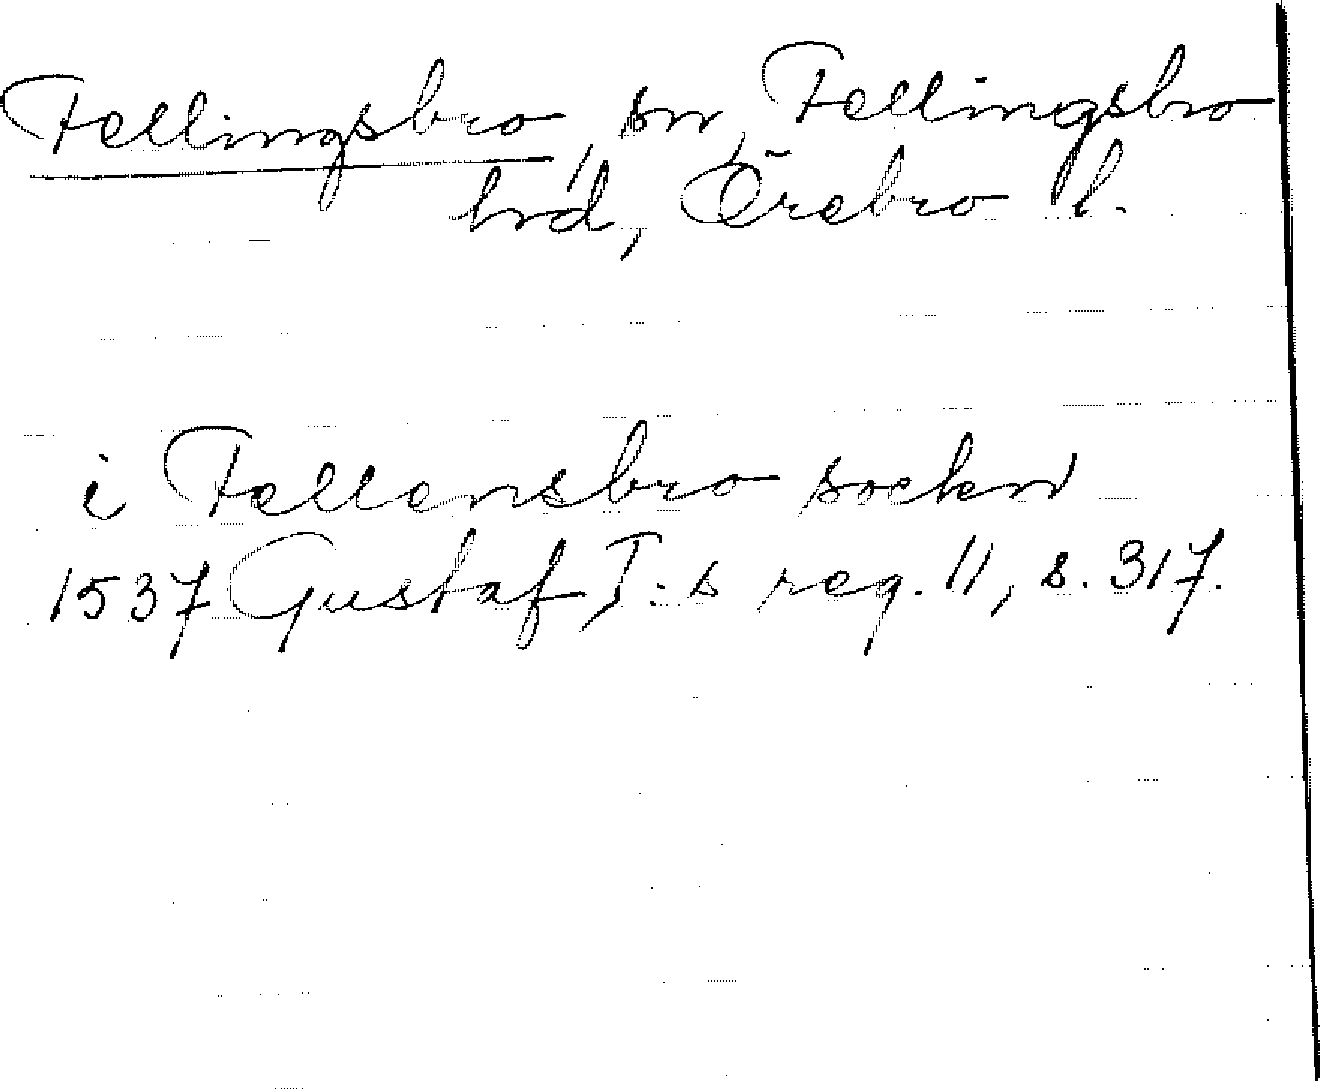 Fellingsbro, sn, Fellingsbro
hrd, Örebro l.
i Fellensbro socken
1537 Gustaf I:s reg. 11, s. 317.